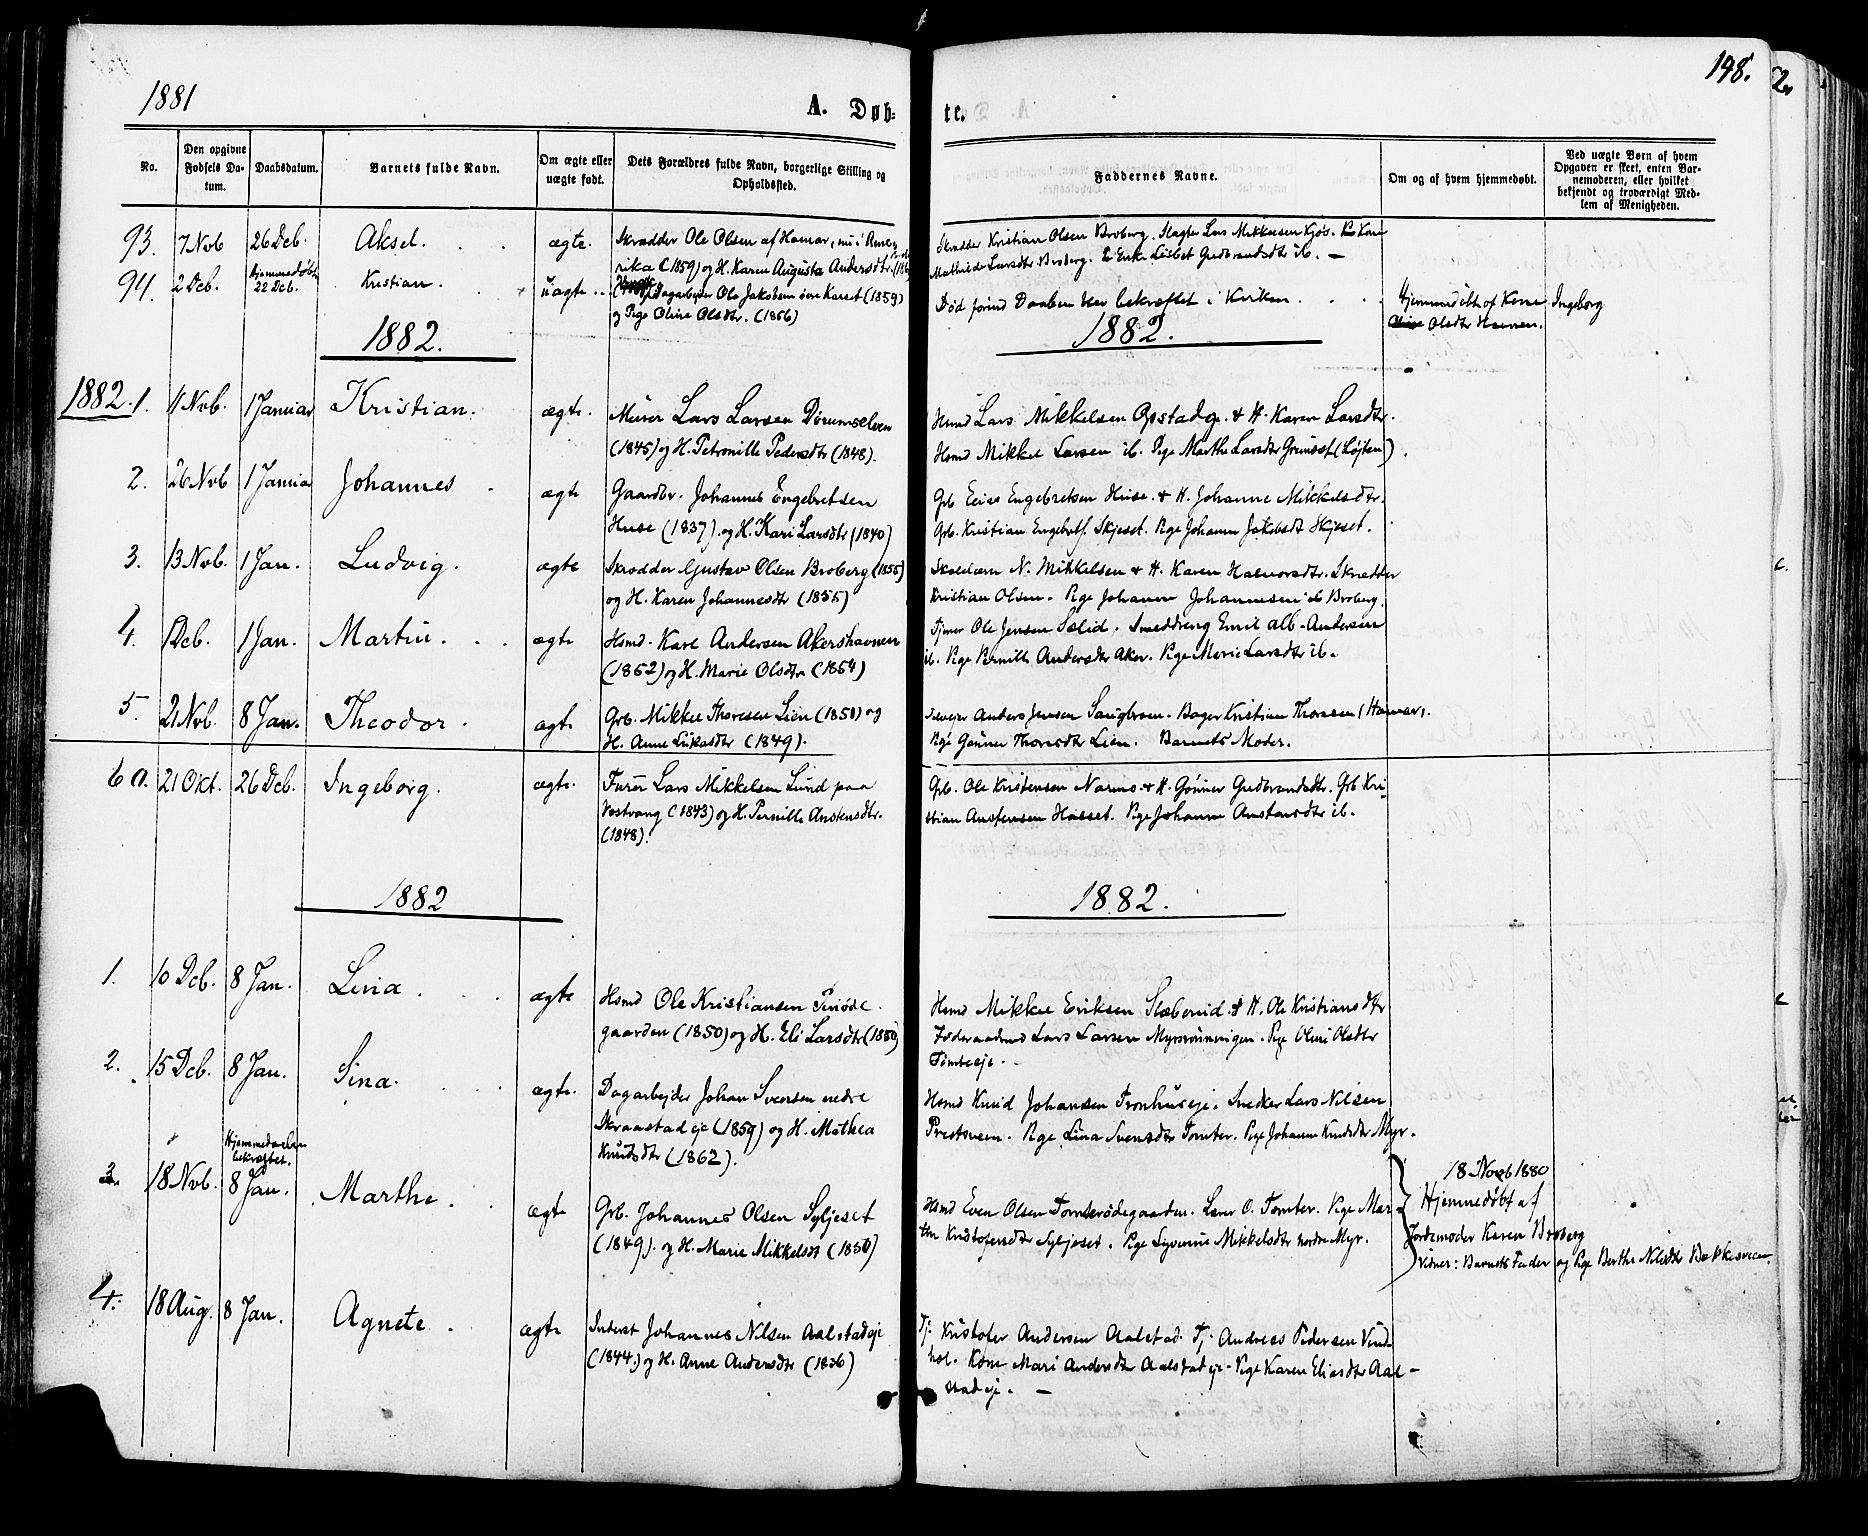 1881
A. Døb-
te.
148.
No.
Den opgivne Fødsels Datum.
Daabsdatum.
Barnets fulde Navn.
Om ægte eller uægte født.
Dets Forældres fulde Navn, borgerlige Stilling og Opholdssted.
Faddernes Navne.
Om og af hvem hjemmedøbt.
Ved uægte Børn af hvem Opgaven er skeet, enten Barnemoderen, eller hvilket bekjendt og troværdigt Medlem af Menigheden.
93. 7 Nov 26 Dcb. Aksel. ægte. Skrædder Ole Olsen af Hamar, nu i Ame
rika (1859) og H. Karen Augusta Andersdtr.
Skrædder Kristian Olsen Broberg. Slagter Lars Mikkelsen Kjøs. Kone
Mathilde Larsdtr Broberg. Enke Lisbet Gudbrandsdtr ib. —
94. 2 Dcb. Hjemmedøbt 22 Dcb. Kristian. uægte Dagarbejder Ole Jakobsen (1859)
og Pige Oline Olsdtr. (1856)
Død førend Daaben blev bekræftet i Kirken.
Hjemmedøbt af Kone
Olsdtr
Ingeborg
1882.
1882.
1882. 1. 11 Nvb. 1 Januar Kristian. ægte. Murer Lars Larsen
(1845) og H. Petronille Pedersdtr (1848).
Hsmd Lars Mikkelsen Opstadeje. & H. Karen Larsdtr.
Hsmd Mikkel Larsen ib. Pige Marthe Larsdtr Grimset (Løjten).
2. 26 Nvb 1 Januar Johannes ægte Gaardbr. Johannes Engebretsen
Huse (1837). og H. Kari Larsdtr (1840)
Grb Engebretsen Huse. & H. Johanne Mikkelsdtr.
Grb. Kristian Engebrets. Skjeset. Pige Johanne Jakobsdt Skjeset.
3. 13 Nvb. 1 Jan. Ludvig. ægte Skrædder Gustav Olsen Broberg (1855)
og H. Karen Johannesdtr (1855)
Skolelærer N. Mikkelsen & H. Karen Halvorsdtr. Skrædder
Kristian Olsen. Pige Johanne Johannesen ib Broberg.
4. 1 Dcb. 1 Jan. Martin. ægte Hsmd. Karl Andersen Akershavnen
(1852) og H. Marie Olsdtr (1854)
Tjener Ole Jensen Sælid. Smeddreng Emil Alb. Andersen
ib. Pige Pernille Andersdtr Aker. Pige Marie Larsdtr ib.
5. 21 Nvb. 8 Jan. Theodor. ægte Grb. Mikkel Thoresen Lien (1851) og
H. Anne Lukasdtr (1849).
Anders Jensen. Bager Kristian Thoresen (Hamar).
Pige Gunner Thoresdtr Lien. Barnets Moder.
6 a. 21 Okt. 26 Dcb. Ingeborg. ægte. Furer Lars Mikkelsen Lund paa
Vestvang (1843) og H. Pernille Anstensdtr.
(1848).
Grb. Ole Kristensen Narmo & H. Gunner Gudbrandsdtr. Grb Kri-
stian Anstensen Hasset. Pige Johanne Anstensdtr ib.
1882
1882.
1. 10 Dcb. 8 Jan. Lina. ægte Hsmd Ole Kristiansen
gaarden (1850) og H. Eli Larsdtr (1850)
Hsmd Mikkel Eriksen & H. Ole Kristiansdtr
Føderaadsmd Lars Larsen Myrrønningen. Pige Oline Olsdtr
Tomtereje.
2. 15 Dcb. 8 Jan. Sina. ægte. Dagarbejder Johan Svensen nedre
Skraastadeje (1859) og H. Mathea
Knudsdtr (1862).
Hsmd Knud Johansen Tronhuseje. Snedker Lars Nilsen
Prestsveen. Pige Lina Svensdtr Tomter. Pige Johanne Knudsdtr Myr.
3. 18 Nvb. Hjemmedaaben bekræftet. 8 Jan. Marthe. ægte Grb. Johannes Olsen Syljeset
(1849). og H. Marie Mikkelsdt (1850)
Hsmd Even Olsen Tomterødegaarden. O. Tomter. Pige Mar-
the Kristofersdtr Syljeset. Pige Mikkelsdtr nordre Myr.
18 Novb 1880
Hjemmedøbt af
Jordemoder Karen Broberg
Vidner: Barnets Fader og Pige Berthe Nilsdtr Bækkesveen.
4. 18 Aug. 8 Jan. Agnete. ægte Inderst Johannes Nilsen Aalstadeje
(1844.) og H. Anne Andersdtr (1836)
Tj. Kristofer Andersen Aalstad. Tj. Andreas Pedersen Vind-
hol. Kone Mari Andersdtr Aalstadeje. Pige Karen Eliasdtr Aal-
stadeje. —